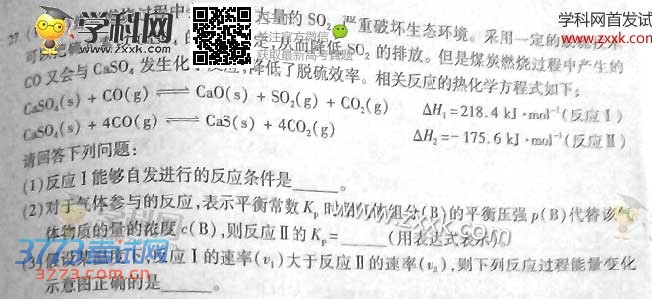 学科网
www.zxxk.com
学科网首发
www.zxxk.co
27
大量的 SO₂ 严重破坏生态环境。采用一定的
,从而降低 SO₂ 的排放。但是煤炭燃烧过程中产生的
获取最新高考真题
CO 又会与 CaSO₄ 发生化学反应,降低了脱硫效率。相关反应的热化学方程式如下:
CaSO₄(s) + CO(g) ⇌ CaO(s) + SO₂(g) + CO₂(g) ΔH₁=218.4 kJ·mol⁻¹(反应Ⅰ)
CaSO₄(s) + 4CO(g) ⇌ CaS(s) + 4CO₂(g) ΔH₂=-175.6 kJ·mol⁻¹(反应Ⅱ)
请回答下列问题:
(1)反应Ⅰ能够自发进行的反应条件是______。
(2)对于气体参与的反应,表示平衡常数 Kₚ 时用气体组分(B)的平衡压强 p(B)代替该气
体物质的量的浓度 c(B),则反应Ⅱ的 Kₚ=______(用表达式表示)。
(3)假设某温度下,反应Ⅰ的速率(v₁)大于反应Ⅱ的速率(v₂),则下列反应过程能量变化
示意图正确的是______。
3773考试网
www.3773.com.cn
学科网
www.zxxk.com